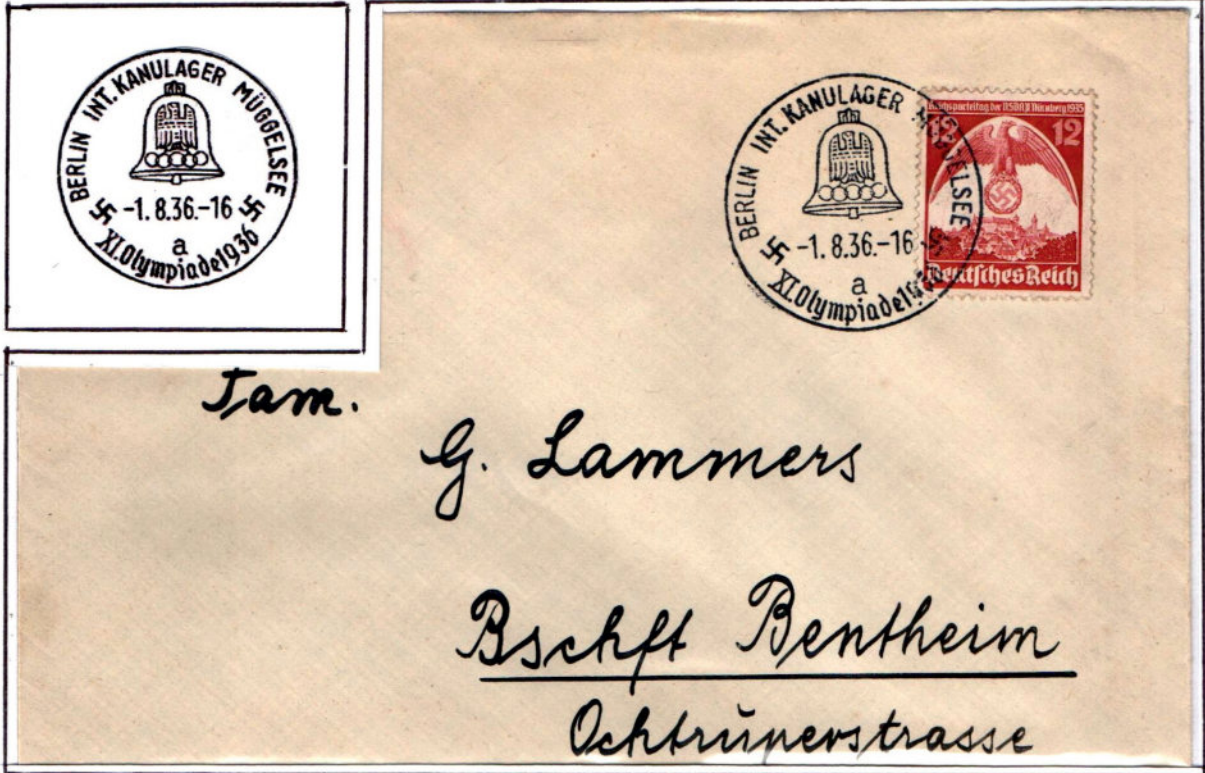 BERLIN INT. KANULAGER MÜGGELSEE
-1.8.36.-16
a
XI.Olympiade1936
BERLIN INT. KANULAGER MÜGGELSEE
-1.8.36.-16
a
XI.Olympiade1936
Reichsparteitag der NSDAP Nürnberg 1935
12 12
Deutsches Reich
Fam.
G. Lammers
Bschft Bentheim
Ochtruperstrasse